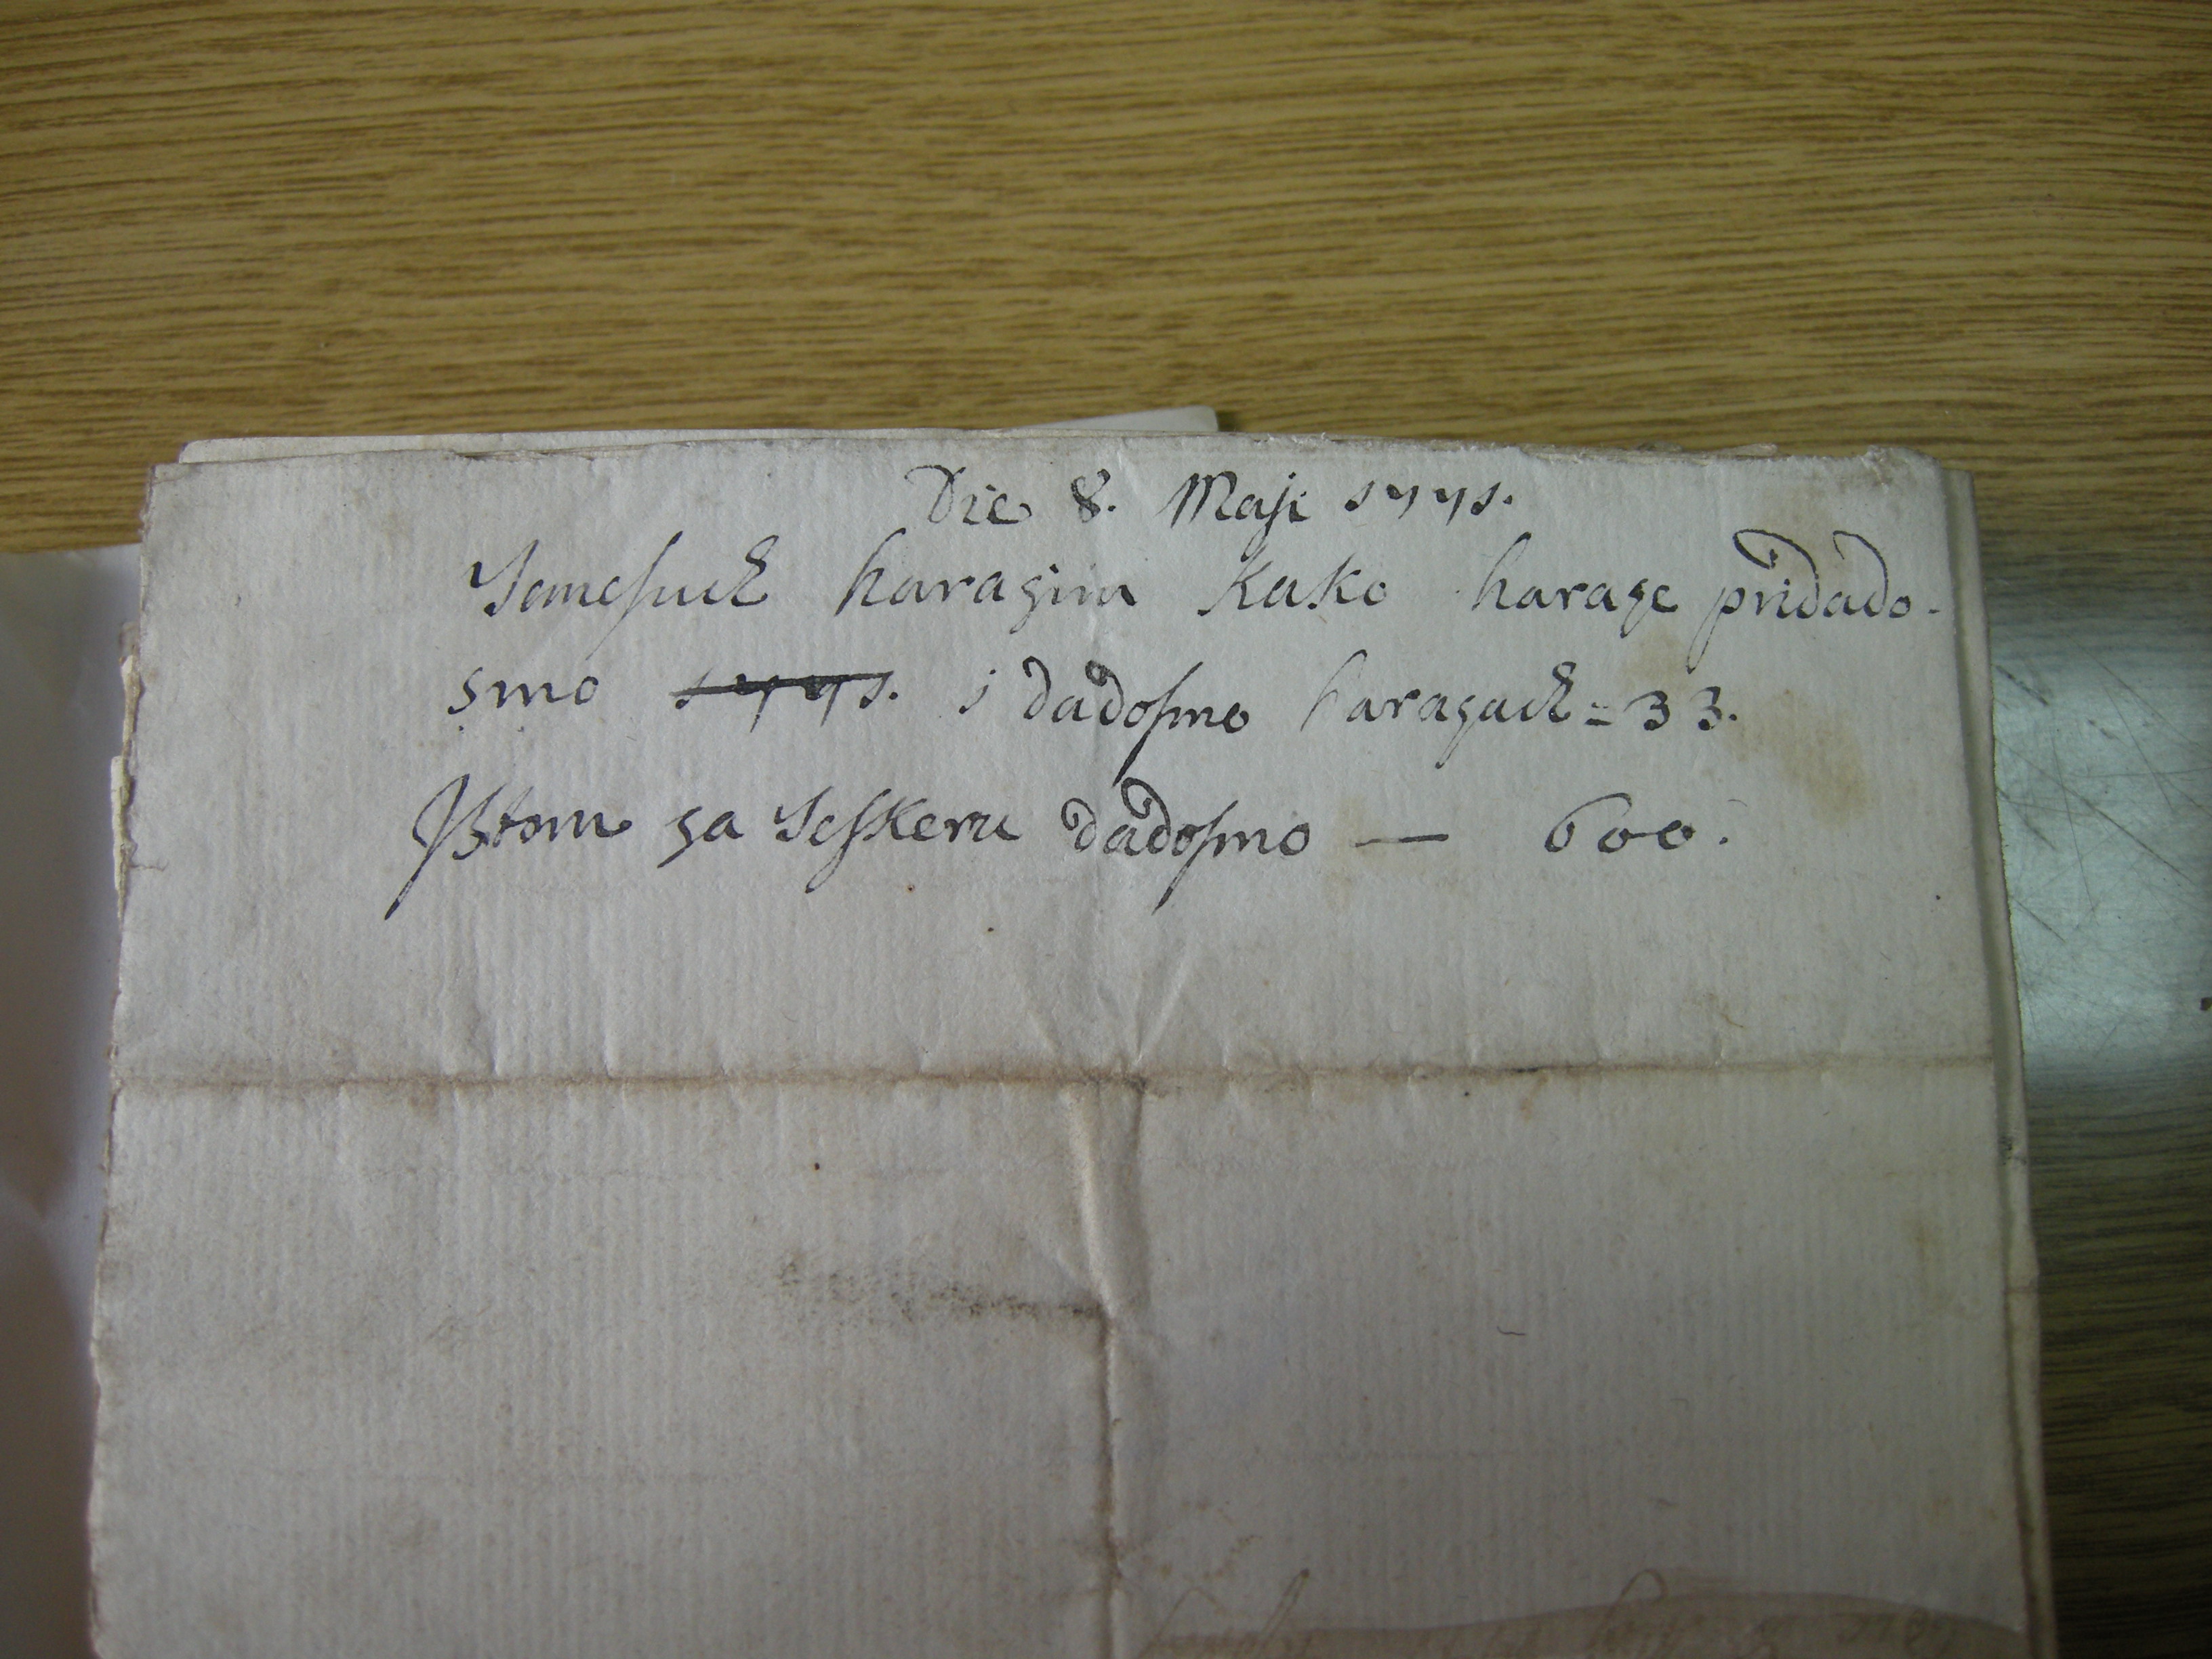 Die 8. Maji 1771.
haragiu kako harage pridado-
smo 1771. i dadosmo haraguch = 33.
Istom za Teskeru dadosmo — 600.